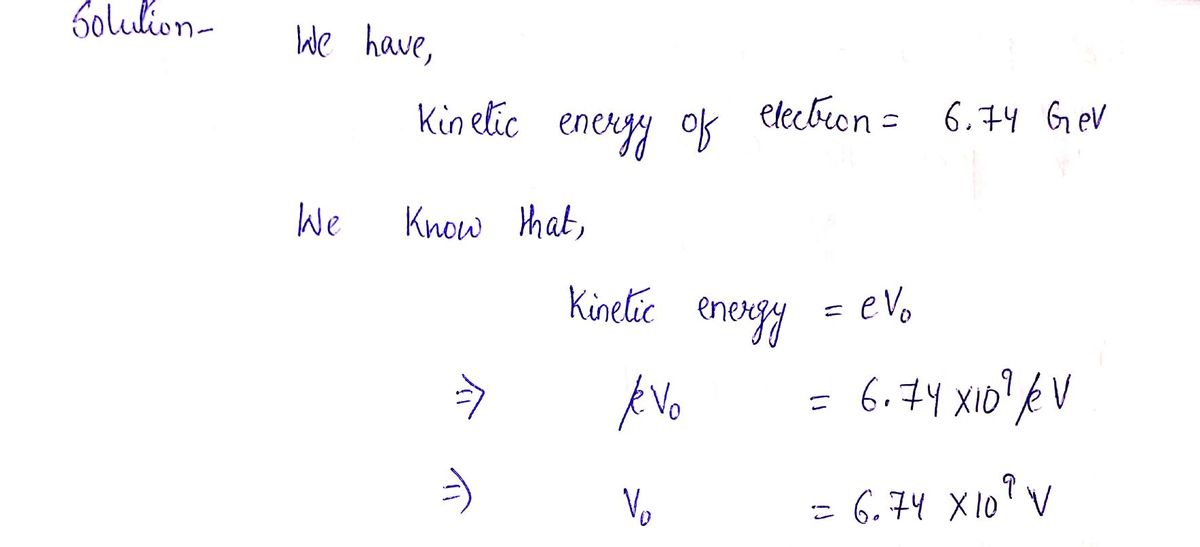 Solution- We have,
Kinetic energy of electron = 6.74 GeV
We Know that,
Kinetic energy = eV₀
⇒ e̸V₀ = 6.74 X10⁹ e̸V
⇒ V₀ = 6.74 X10⁹ V